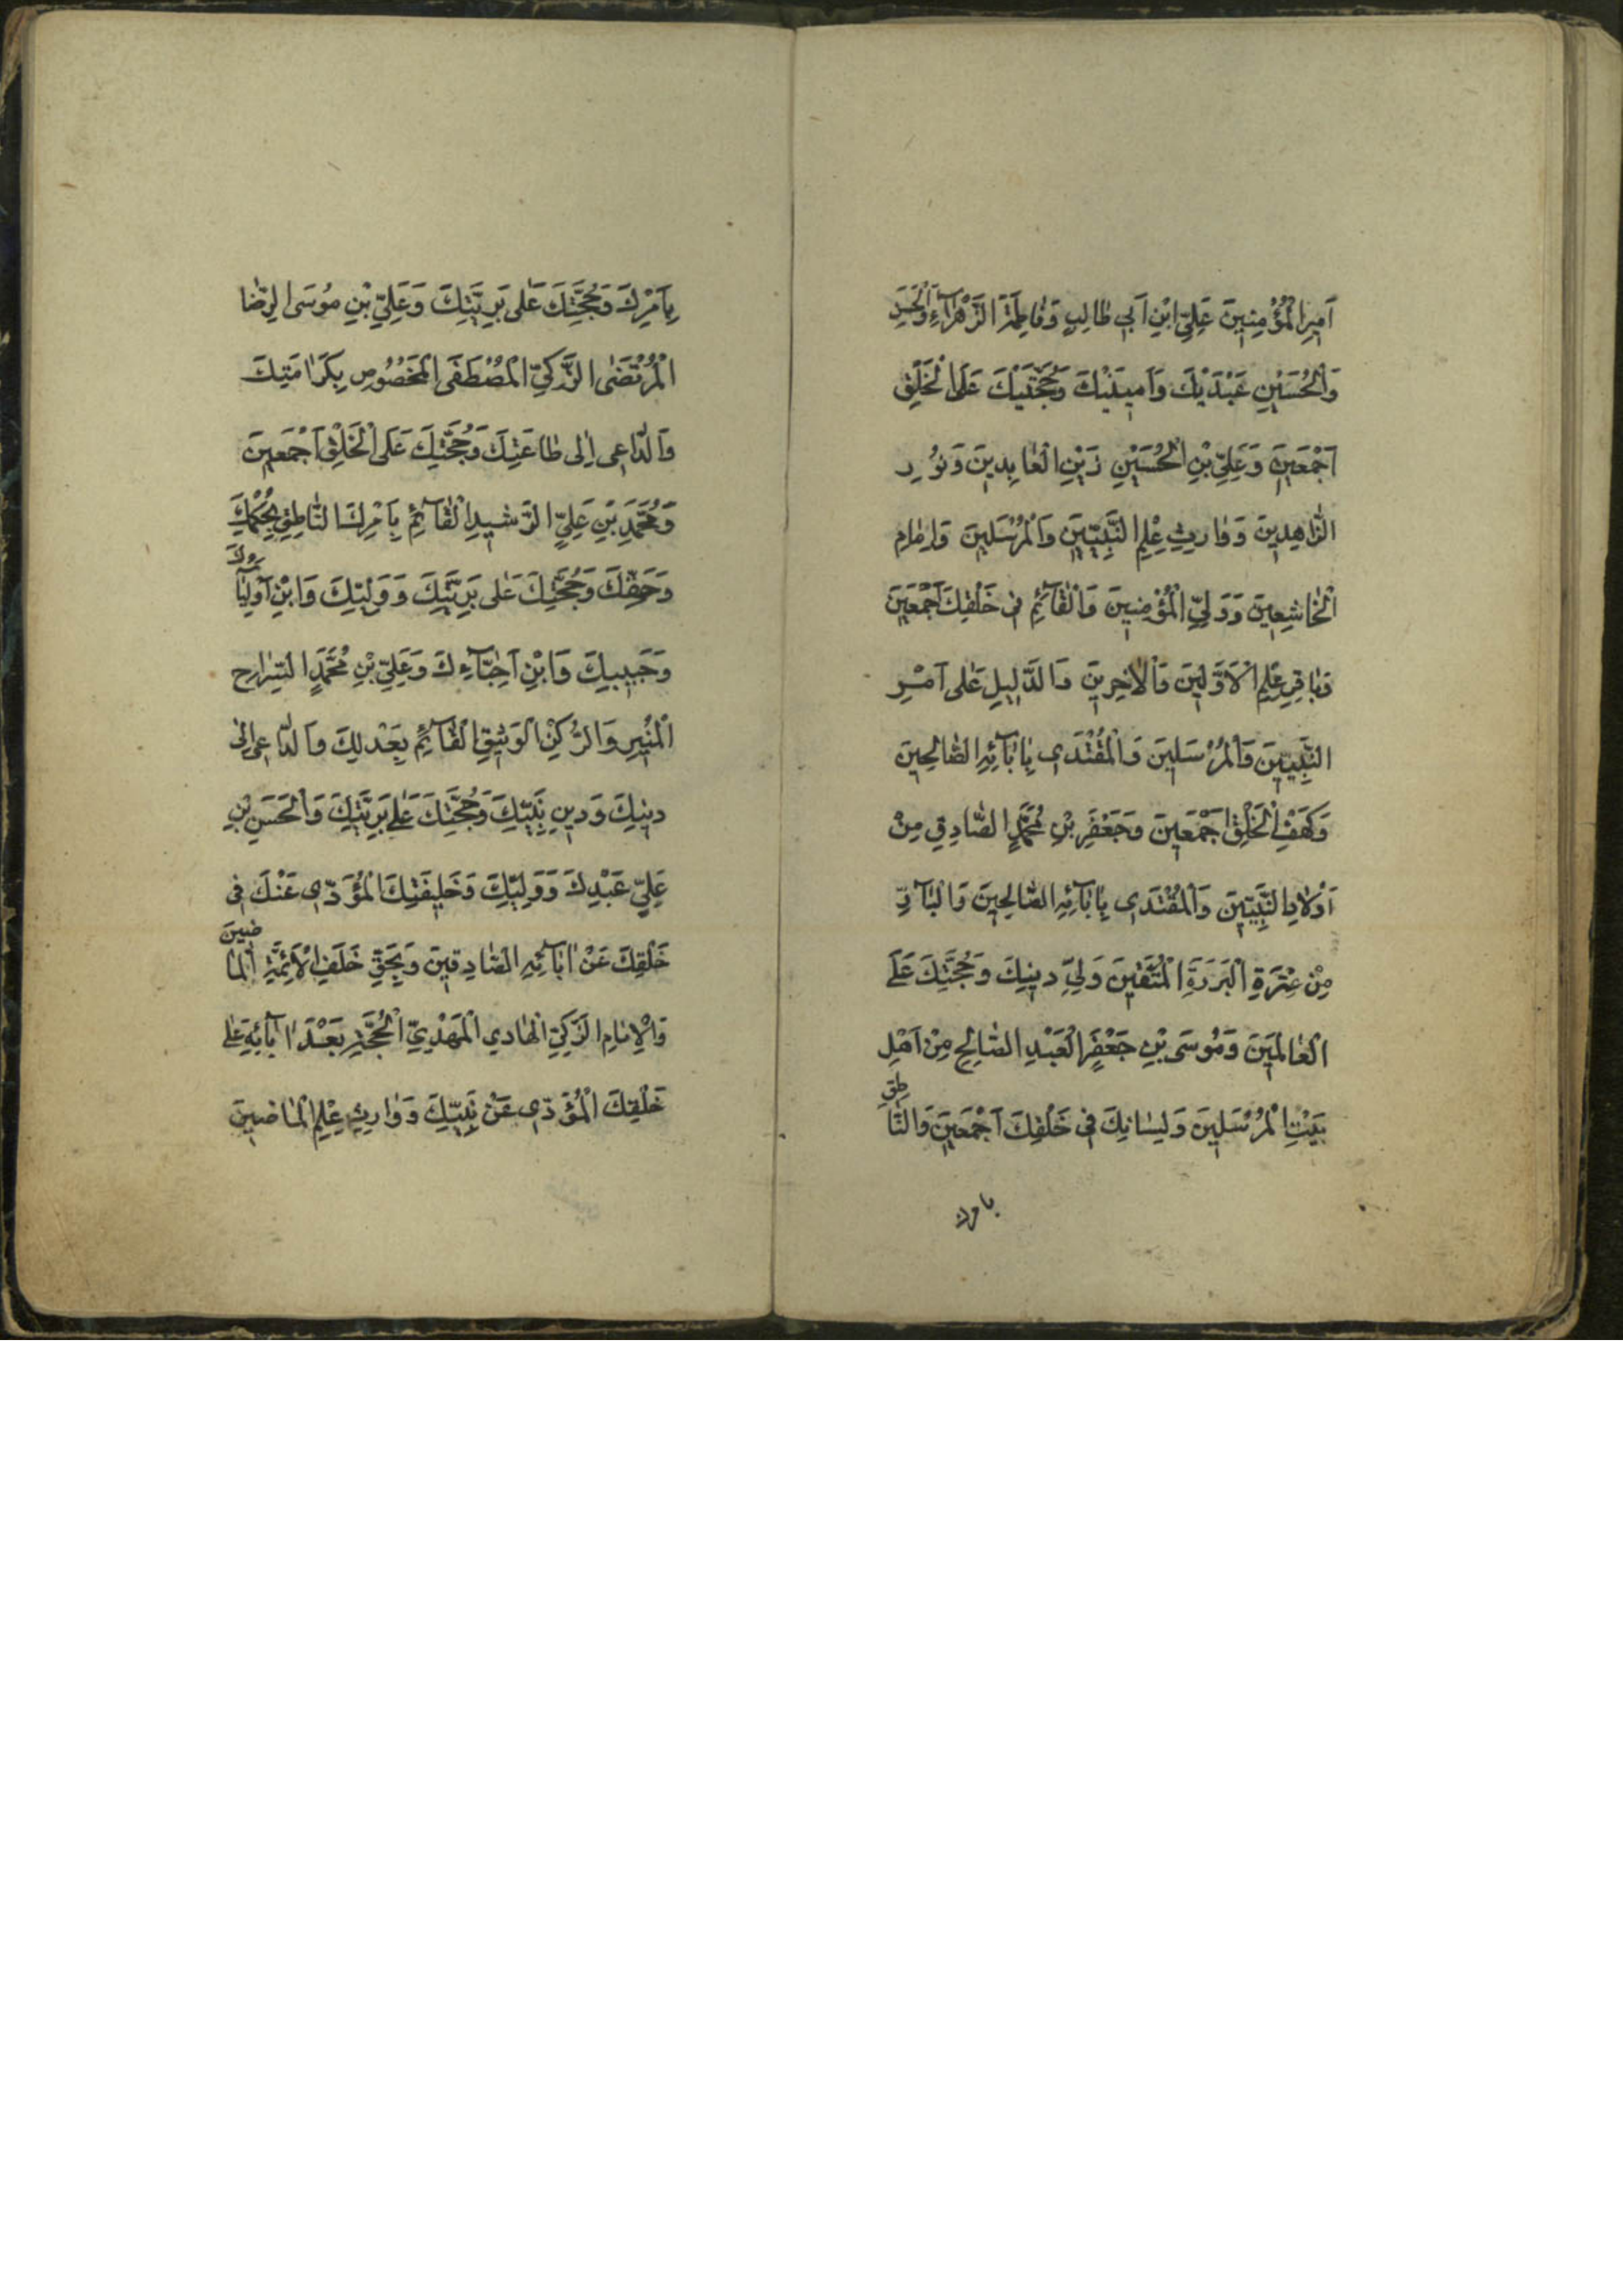 اَمِيرِ الْمُؤْمِنِينَ عَلِيِّ ابْنِ اَبِي طَالِبٍ وَفَاطِمَةَ الزَّهْرَآءِ وَالْحَسَنِ
وَالْحُسَيْنِ عَبْدَيْكَ وَاَمِينَيْكَ وَحُجَّتَيْكَ عَلَى الْخَلْقِ
اَجْمَعِينَ وَعَلِيِّ بْنِ الْحُسَيْنِ زَيْنِ الْعَابِدِينَ وَنُورِ
الزَّاهِدِينَ وَوَارِثِ عِلْمِ النَّبِيِّينَ وَالْمُرْسَلِينَ وَاِمَامِ
الْخَاشِعِينَ وَوَلِيِّ الْمُؤْمِنِينَ وَالْقَآئِمِ فِى خَلْقِكَ اَجْمَعِينَ
وَبَاقِرِ عِلْمِ الْاَوَّلِينَ وَالْاٰخِرِينَ وَالدَّلِيلِ عَلَى اَمْرِ
النَّبِيِّينَ وَالْمُرْسَلِينَ وَالْمُقْتَدَى بِاٰبَآئِهِ الصَّالِحِينَ
وَكَهْفِ الْخَلْقِ اَجْمَعِينَ وَجَعْفَرِ بْنِ مُحَمَّدٍ الصَّادِقِ مِنْ
اَوْلَادِ النَّبِيِّينَ وَالْمُقْتَدَى بِاٰبَآئِهِ الصَّالِحِينَ وَالْبَآرِّ
مِنْ عِتْرَةِ الْبَرَرَةِ الْمُتَّقِينَ وَلِيِّ دِينِكَ وَحُجَّتِكَ عَلَى
الْعَالَمِينَ وَمُوسَى بْنِ جَعْفَرٍ الْعَبْدِ الصَّالِحِ مِنْ اَهْلِ
بَيْتِ الْمُرْسَلِينَ وَلِسَانِكَ فِى خَلْقِكَ اَجْمَعِينَ وَالنَّاطِقِ
بامرك
بِاَمْرِكَ وَحُجَّتِكَ عَلَى بَرِيَّتِكَ وَعَلِيِّ بْنِ مُوسَى الرِّضَا
الْمُرْتَضَى الزَّكِيِّ الْمُصْطَفَى الْمَخْصُوصِ بِكَرَامَتِكَ
وَالدَّاعِى اِلَى طَاعَتِكَ وَحُجَّتِكَ عَلَى الْخَلْقِ اَجْمَعِينَ
وَمُحَمَّدِ بْنِ عَلِيٍّ الرَّشِيدِ الْقَآئِمِ بِاَمْرِكَ النَّاطِقِ بِحُكْمِكَ
وَحَقِّكَ وَحُجَّتِكَ عَلَى بَرِيَّتِكَ وَوَلِيِّكَ وَابْنِ اَوْلِيَآئِكَ
وَحَبِيبِكَ وَابْنِ اَحِبَّآءِكَ وَعَلِيِّ بْنِ مُحَمَّدٍ السِّرَاجِ
الْمُنِيرِ وَالرُّكْنِ الْوَثِيقِ الْقَآئِمِ بِعَدْلِكَ وَالدَّاعِى اِلَى
دِينِكَ وَدِينِ نَبِيِّكَ وَحُجَّتِكَ عَلَى بَرِيَّتِكَ وَالْحَسَنِ بْنِ
عَلِيٍّ عَبْدِكَ وَوَلِيِّكَ وَخَلِيفَتِكَ الْمُؤَدِّى عَنْكَ فِى
خَلْقِكَ عَنْ اٰبَآئِهِ الصَّادِقِينَ وَبِحَقِّ خَلَفِ الْاَئِمَّةِ الْمَاضِينَ
وَالْاِمَامِ الزَّكِيِّ الْهَادِي الْمَهْدِيِّ الْحُجَّةِ بَعْدَ اٰبَآئِهِ عَلَى
خَلْقِكَ الْمُؤَدِّى عَنْ نَبِيِّكَ وَوَارِثِ عِلْمِ الْمَاضِينَ